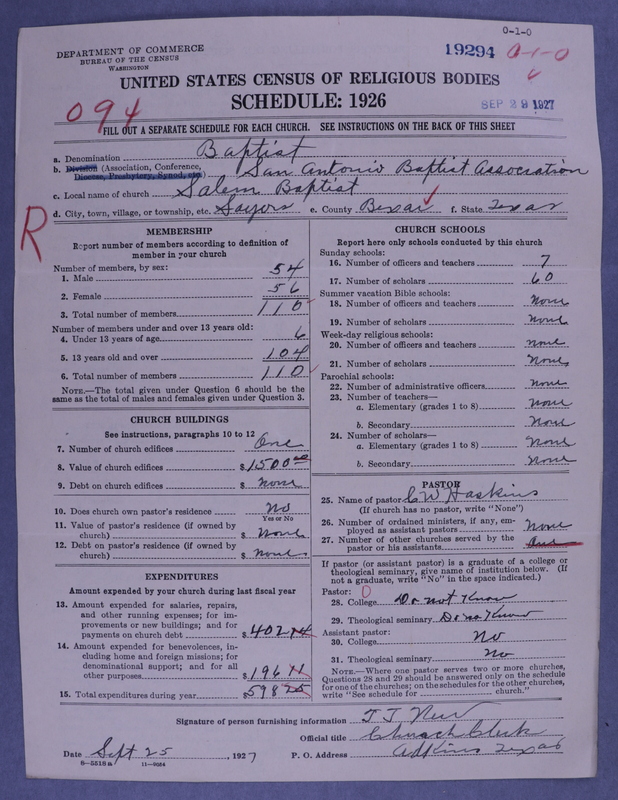 0-1-0
DEPARTMENT OF COMMERCE
BUREAU OF THE CENSUS
WASHINGTON
19294 0-1-0
UNITED STATES CENSUS OF RELIGIOUS BODIES
SCHEDULE: 1926
SEP 29 1927
094
FILL OUT A SEPARATE SCHEDULE FOR EACH CHURCH. SEE INSTRUCTIONS ON THE BACK OF THIS SHEET
a. Denomination Baptist
b. Division (Association, Conference, San Antonio Baptist Association
Diocese, Presbytery, Synod, etc.)
c. Local name of church Salem Baptist
d. City, town, village, or township, etc. Sayers e. County Bexar f. State Texas
R
MEMBERSHIP
Report number of members according to definition of
member in your church
Number of members, by sex:
1. Male 54
2. Female 56
3. Total number of members 110
Number of members under and over 13 years old:
4. Under 13 years of age 6
5. 13 years old and over 104
6. Total number of members 110
NOTE.—The total given under Question 6 should be
same as the total of males and females given under Question 3.
CHURCH BUILDINGS
See instructions, paragraphs 10 to 12
7. Number of church edifices One
8. Value of church edifices $1500.00
9. Debt on church edifices $ None
10. Does church own pastor's residence No
Yes or No
11. Value of pastor's residence (if owned by
church) $ None
12. Debt on pastor's residence (if owned by
church) $ None
EXPENDITURES
Amount expended by your church during last fiscal year
13. Amount expended for salaries, repairs,
and other running expenses; for im-
provements or new buildings; and for
payments on church debt $402 14
14. Amount expended for benevolences, in-
cluding home and foreign missions; for
denominational support; and for all
other purposes $196 11
15. Total expenditures during year $598 25
CHURCH SCHOOLS
Report here only schools conducted by this church
Sunday schools:
16. Number of officers and teachers 7
17. Number of scholars 60
Summer vacation Bible schools:
18. Number of officers and teachers None
19. Number of scholars None
Week-day religious schools:
20. Number of officers and teachers None
21. Number of scholars None
Parochial schools:
22. Number of administrative officers None
23. Number of teachers—
a. Elementary (grades 1 to 8) None
b. Secondary None
24. Number of scholars—
a. Elementary (grades 1 to 8) None
b. Secondary None
PASTOR
25. Name of pastor C W Haskins
(If church has no pastor, write "None")
26. Number of ordained ministers, if any, em-
ployed as assistant pastors None
27. Number of other churches served by the
pastor or his assistants One
If pastor (or assistant pastor) is a graduate of a college or
theological seminary, give name of institution below. (If
not a graduate, write "No" in the space indicated.)
Pastor: 0
28. College Do not Know
29. Theological seminary Do no Know
Assistant pastor:
30. College No
31. Theological seminary No
NOTE.—Where one pastor serves two or more churches,
Questions 28 and 29 should be answered only on the schedule
for one of the churches; on the schedules for the other churches,
write "See schedule for church."
Signature of person furnishing information T J New
Official title Church Clerk
Date Sept 25, 1927 P. O. Address Adkins Texas
8-5518a 11-9084